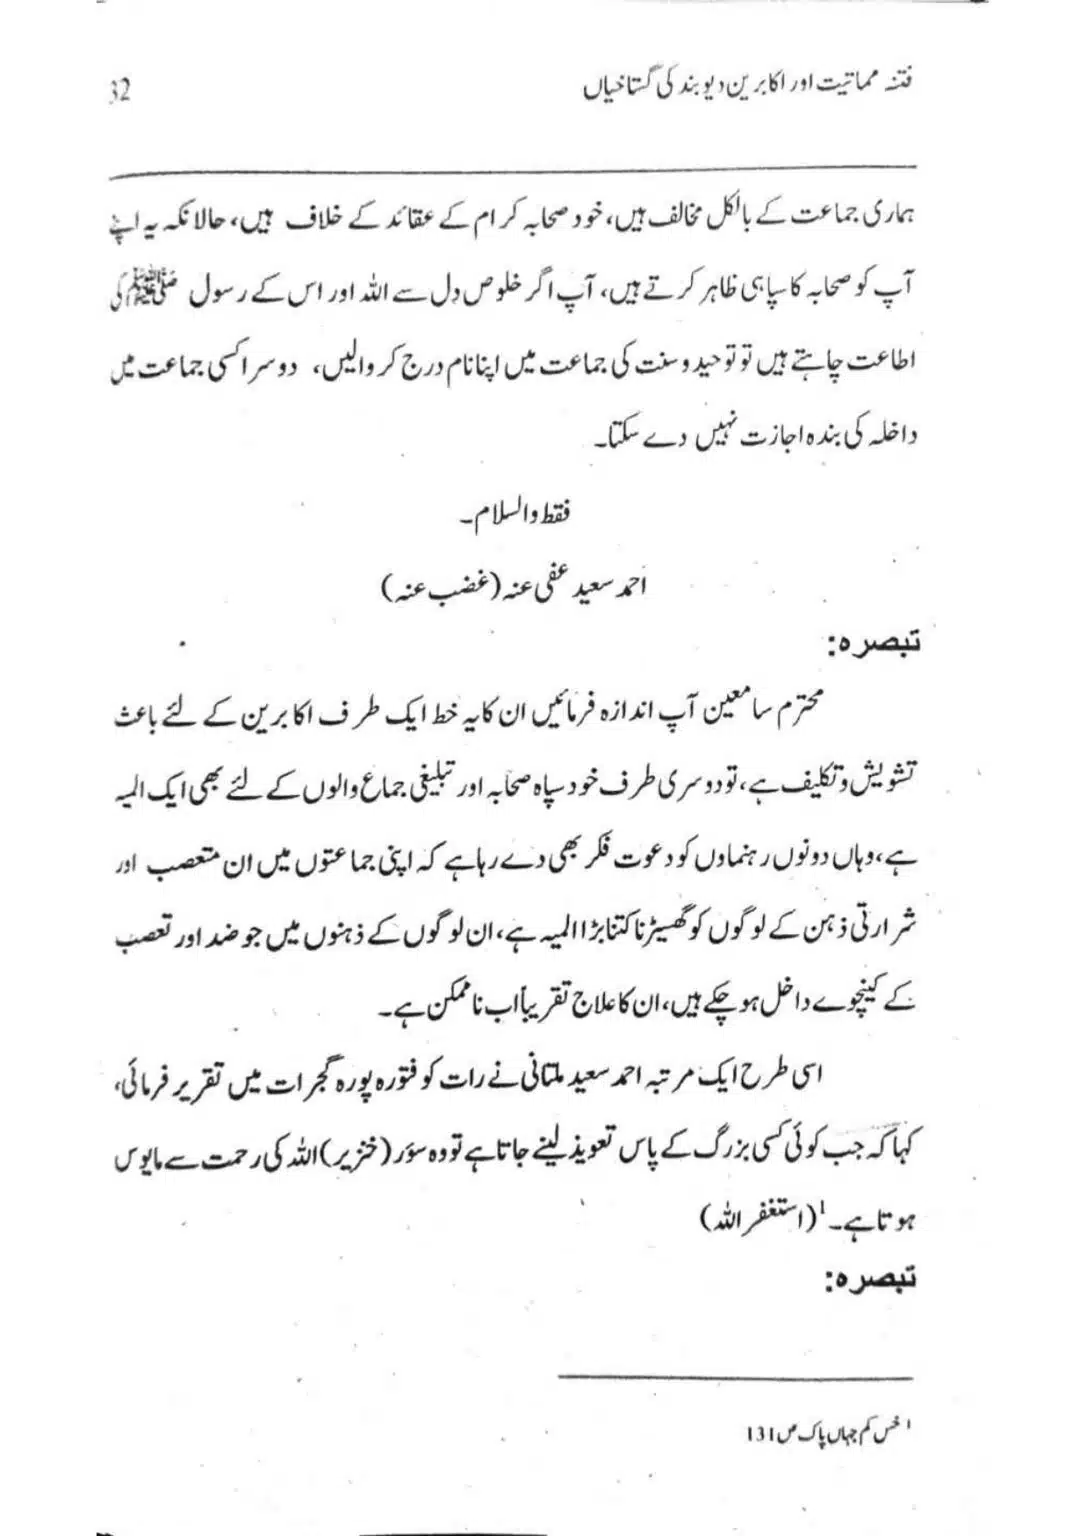 فتنہ مماتیت اور اکابرین دیوبند کی گستاخیاں
32
ہماری جماعت کے بالکل مخالف ہیں، خود صحابہ کرام کے عقائد کے خلاف ہیں، حالانکہ یہ اپنے
آپ کو صحابہ کا سپاہی ظاہر کرتے ہیں، آپ اگر خلوص دل سے اللہ اور اس کے رسول ﷺ کی
اطاعت چاہتے ہیں تو توحید و سنت کی جماعت میں اپنا نام درج کروالیں، دوسرا کسی جماعت میں
داخلہ کی بندہ اجازت نہیں دے سکتا۔
فقط والسلام۔
احمد سعید عفی عنہ (غضب عنہ)
تبصرہ:
محترم سامعین آپ اندازہ فرمائیں ان کا یہ خط ایک طرف اکابرین کے لئے باعث
تشویش و تکلیف ہے، تو دوسری طرف خود سپاہ صحابہ اور تبلیغی جماع والوں کے لئے بھی ایک المیہ
ہے، وہاں دونوں رہنماوں کو دعوت فکر بھی دے رہا ہے کہ اپنی جماعتوں میں ان متعصب اور
شرارتی ذہن کے لوگوں کو گھسیڑنا کتنا بڑا المیہ ہے، ان لوگوں کے ذہنوں میں جو ضد اور تعصب
کے کینچوے داخل ہو چکے ہیں، ان کا علاج تقریباً اب ناممکن ہے۔
اسی طرح ایک مرتبہ احمد سعید ملتانی نے رات کو فتورہ پورہ گجرات میں تقریر فرمائی،
کہا کہ جب کوئی کسی بزرگ کے پاس تعویذ لینے جاتا ہے تو وہ سؤر (خنزیر) اللہ کی رحمت سے مایوس
ہوتا ہے۔¹ (استغفر اللہ)
تبصرہ:
¹ خس کم جہاں پاک ص 131